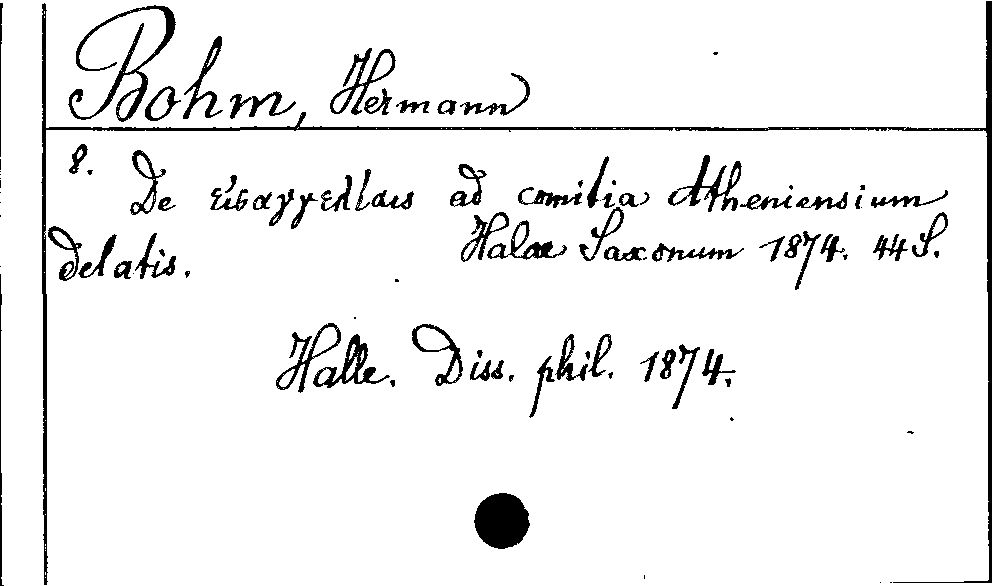 Bohm, Hermann
8.
De εἰσαγγελίαις ad comitia Atheniensium
delatis. Halae Saxonum 1874. 44 S.
Halle. Diss. phil. 1874.